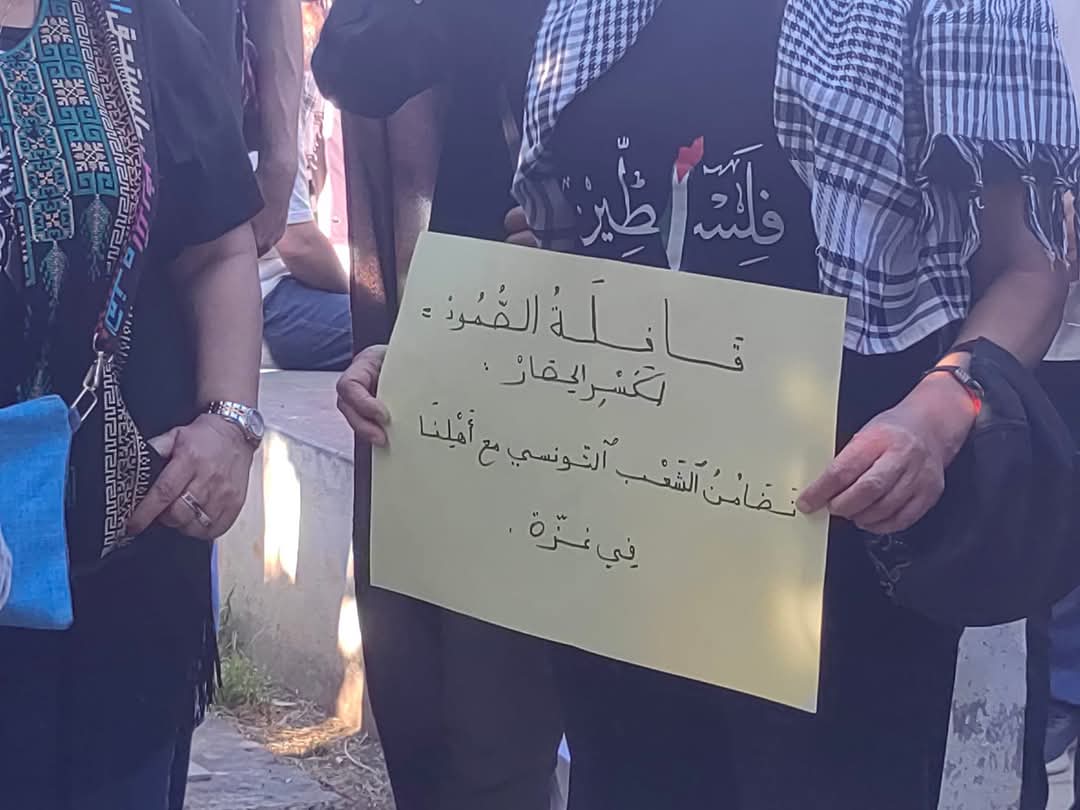 فِلِسْطِّيْن
قَافِلَةُ الصُّمُودْ =
لِكَسْرِ الحِصَارْ :
تَضَامُنُ الشَّعْبِ التونسي مع أَهْلِنَا
فِي غزّة .